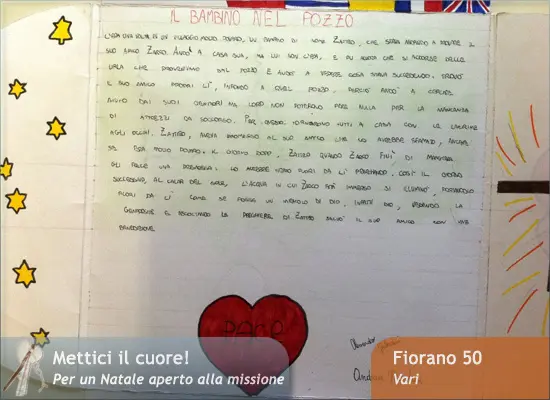 IL BAMBINO NEL POZZO
C'ERA UNA VOLTA IN UN VILLAGGIO MOLTO POVERO, UN BAMBINO DI NOME ZAITRO, CHE STAVA ANDANDO A TROVARE IL
SUO AMICO ZARCO. ANDO' A CASA SUA, MA LUI NON C'ERA, E FU ALLORA CHE SI ACCORSE DELLE
URLA CHE PROVENIVANO DAL POZZO E ANDO' A VEDERE COSA STAVA SUCCEDENDO. TROVO'
IL SUO AMICO PROPRIO LI', IN FONDO A QUEL POZZO, PERCIO' ANDO' A CERCARE
AIUTO DAI SUOI GENITORI MA LORO NON POTERONO FARE NULLA PER LA MANCANZA
DI ATTREZZI DA SOCCORSO. PER QUESTO TORNARONO TUTTI A CASA CON LE LACRIME
AGLI OCCHI. ZAITRO, AVEVA PROMESSO AL SUO AMICO CHE LO AVREBBE SFAMATO, ANCHE
SE ERA MOLTO POVERO. IL GIORNO DOPO, ZAITRO QUANDO ZARCO FINI' DI MANGIARE
GLI FECE UNA PROMESSA: LO AVREBBE TIRATO FUORI DA LI' PREGANDO. COSI' IL GIORNO
SUCCESSIVO, AL CALAR DEL SOLE, L'ACQUA IN CUI ZARCO ERA IMMERSO SI ELEVO', PORTANDOLO
FUORI DA LI' COME SE FOSSE UN MIRACOLO DI DIO, INFATTI DIO, VEDENDO LA
GENEROSITÀ E ASCOLTANDO LE PREGHIERE DI ZAITRO SALVO' IL SUO AMICO CON UNA
BENEDIZIONE.
PACE
Alessandro
Andrea
Mettici il cuore!
Per un Natale aperto alla missione
Fiorano 50
Vari